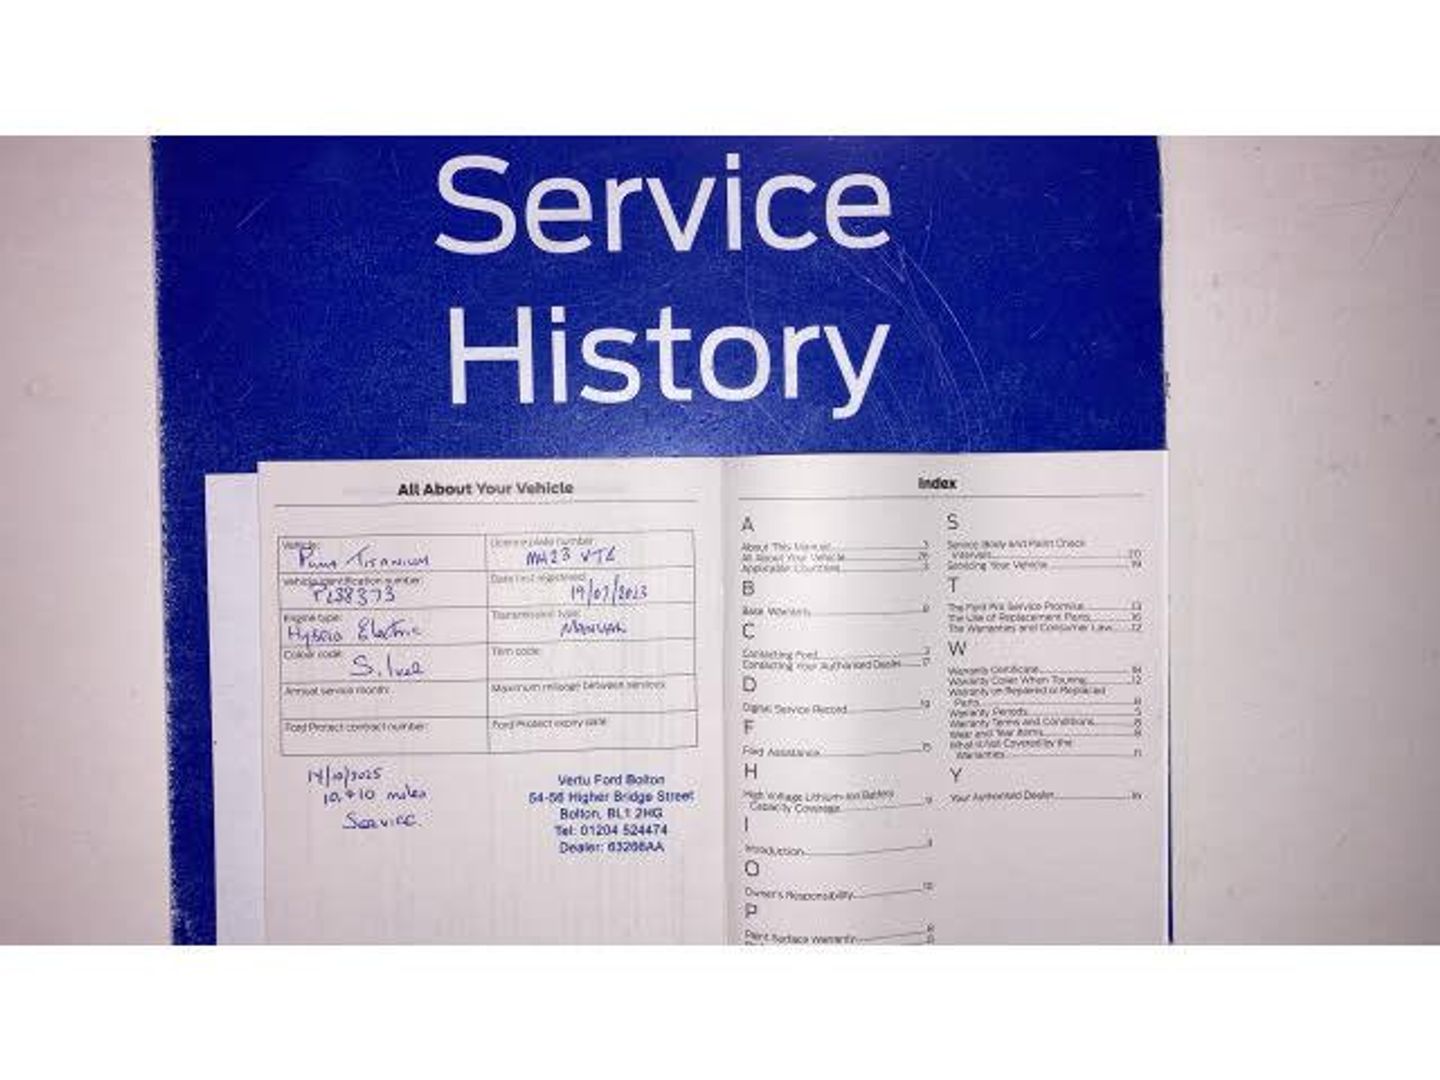 Service
History
All About Your Vehicle
Vehicle:
Puma Titanium
Licence plate number:
MA23
Vehicle identification number:
PL38373
Date first registered:
19/07/2023
Engine type:
Hybrid Electric
Transmission type:
Manual
Colour code:
Silver
Trim code:
Annual service month:
Maximum mileage between services:
Ford Protect contract number:
Ford Protect expiry date:
14/10/2025
miles
Service
Vertu Ford Bolton
54-56 Higher Bridge Street
Bolton, BL1 2HG
Tel: 01204 524474
Dealer: 63266AA
Index
A
About This Manual 3
All About Your Vehicle 26
Applicable Countries 3
B
Base Warranty 8
C
Contacting Ford 3
Contacting Your Authorised Dealer 17
D
Digital Service Record 19
F
Ford Assistance 15
H
High Voltage Lithium-ion Battery
Capacity Coverage 9
I
Introduction
O
Owner's Responsibility 10
P
Paint Surface Warranty 8
S
Service Body and Paint Check
Intervals 20
Servicing Your Vehicle 19
T
The Ford Pro Service Promise 13
The Use of Replacement Parts 16
The Warranties and Consumer Law 12
W
Warranty Certificate
Warranty Cover When Touring 12
Warranty on Repaired or Replaced
Parts 8
Warranty Periods 5
Warranty Terms and Conditions 8
Wear and Tear Items 8
What Is Not Covered by the
Warranties 11
Y
Your Authorised Dealer